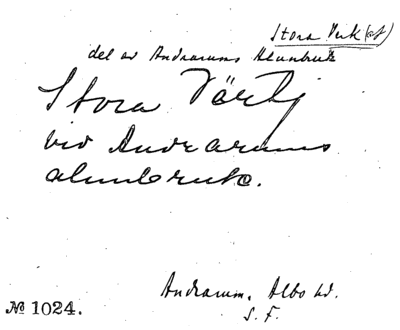 Stora Verk(et)
del av Andrarums Alunbruk
Stora
vid Andrarums
alunbruk.
Andrarum. Albo hd.
S. F.
№ 1024.